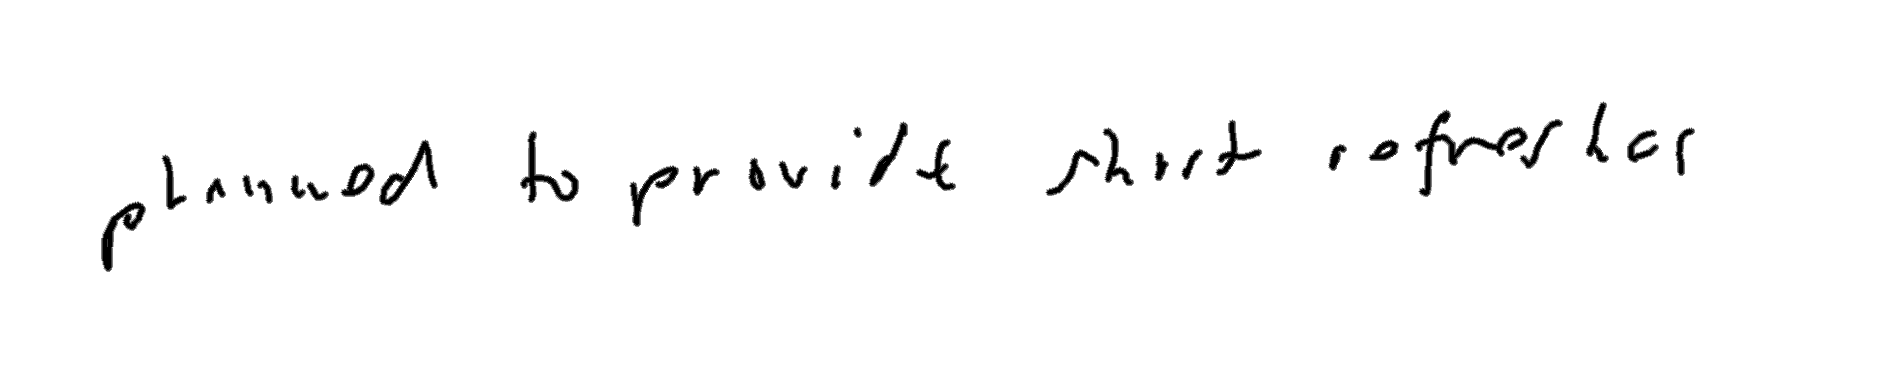 planned to provide short refresher